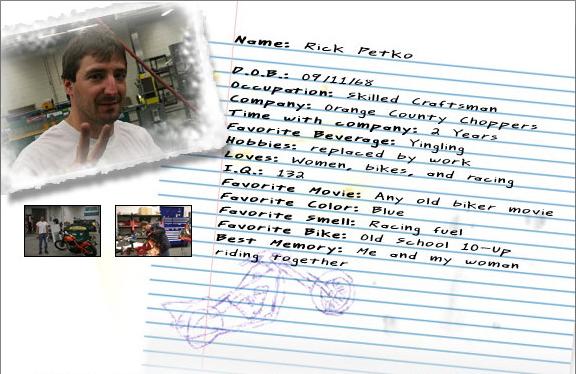 Name: Rick Petko
D.O.B.: 09/11/68
Occupation: Skilled Craftsman
Company: Orange County Choppers
Time with company: 2 Years
Favorite Beverage: Yingling
Hobbies: replaced by work
Loves: Women, bikes, and racing
I.Q.: 132
Favorite Movie: Any old biker movie
Favorite Color: Blue
Favorite Smell: Racing fuel
Favorite Bike: Old School 10-Up
Best Memory: Me and my woman
riding together